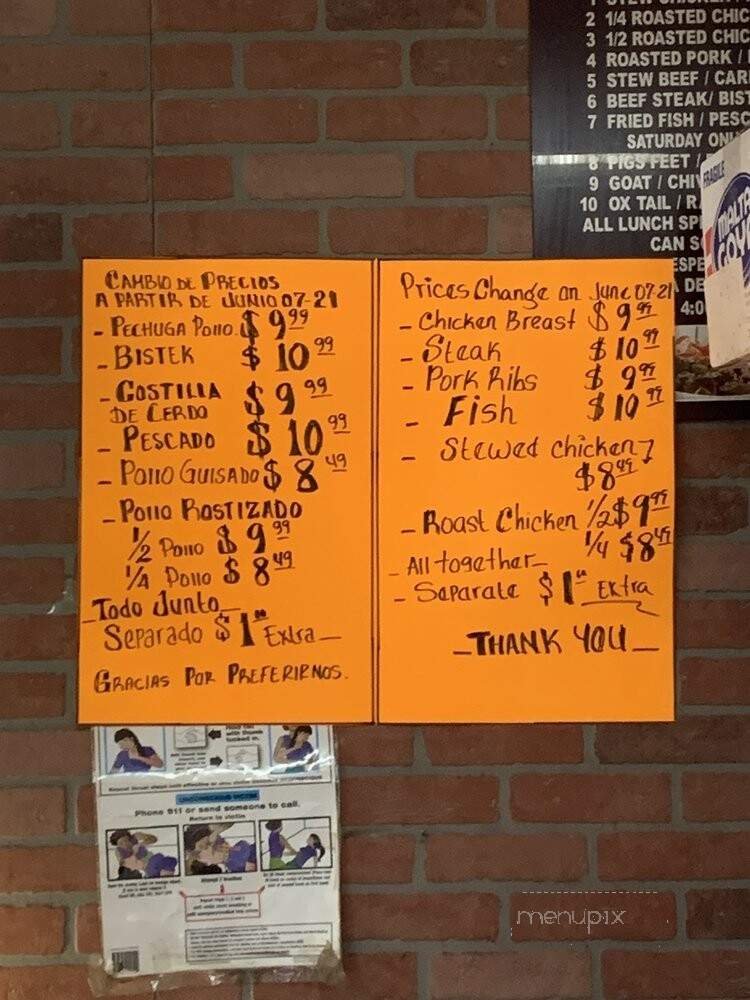 2 1/4 ROASTED CHIC
3 1/2 ROASTED CHIC
4 ROASTED PORK /
5 STEW BEEF / CAR
6 BEEF STEAK/ BIST
7 FRIED FISH / PESC
SATURDAY ONL
8 PIGS FEET /
9 GOAT / CHIV
10 OX TAIL / R
ALL LUNCH SP
CAN S
ESPE
DE
4:0
FRAGILE
MALTA
GOYA
CAMBIO DE PRECIOS
A PARTIR DE JUNIO 07-21
- PECHUGA POLLO. $ 9 99
- BISTEK $ 10 99
- COSTILLA $ 9 99
DE CERDO
- PESCADO $ 10 99
- POLLO GUISADO $ 8 49
- POLLO ROSTIZADO
1/2 POLLO $ 9 99
1/4 POLLO $ 8 49
_Todo Junto_
Separado $ 1 00 Extra_
GRACIAS POR PREFERIRNOS.
Prices Change on June 07-21
- Chicken Breast $ 9 99
- Steak $ 10 99
- Pork Ribs $ 9 99
- Fish $ 10 99
- Stewed chicken
$8 49
- Roast Chicken 1/2 $9 99
1/4 $8 49
- All together_
- Separate $ 1 00 Extra
_THANK YOU_
with thumb
tucked in.
UNCONSCIOUS VICTIM
Phone 911 or send someone to call.
Return to victim
menupix